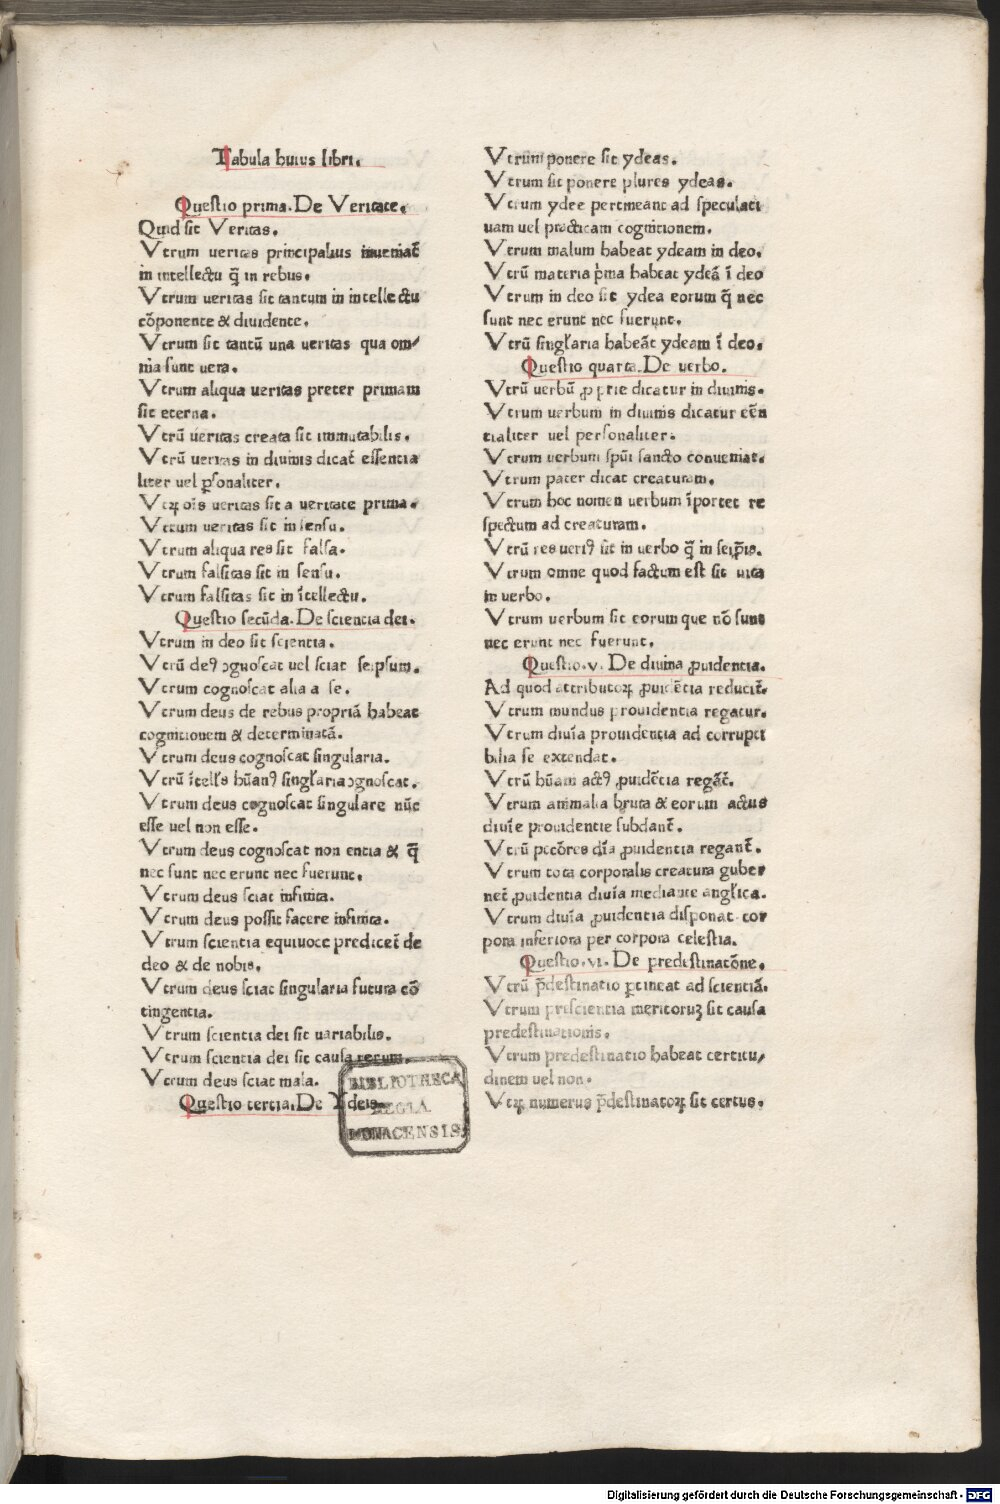 Tabula huius libri.
Questio prima. De Veritate.
Quid sit Veritas.
Vtrum ueritas principalius inueniat᷑
in intellectu q̃ in rebus.
Vtrum ueritas sit tantum in intellectu
cõponente & diuidente.
Vtrum sit tantũ una ueritas qua om/
nia sunt uera.
Vtrum aliqua ueritas preter primam
sit eterna.
Vtrũ ueritas creata sit immutabilis.
Vtrũ ueritas in diuinis dicat᷑ essentia
liter uel ꝑsonaliter.
Vtꝝ oĩs ueritas sit a ueritate prima.
Vtrum ueritas sit in sensu.
Vtrum aliqua res sit falsa.
Vtrum falsitas sit in sensu.
Vtrum falsitas sit in ĩtellectu.
Questio secũda. De scientia dei.
Vtrum in deo sit scientia.
Vtrũ deꝰ ꝯgnoscat uel sciat seipsum.
Vtrum cognoscat alia a se.
Vtrum deus de rebus propriã habeat
cognitionem & determinatã.
Vtrum deus cognoscat singularia.
Vtrũ ĩtells̃ hũanꝰ singl̃aria ꝯgnoscat.
Vtrum deus cognoscat singulare nũc
esse uel non esse.
Vtrum deus cognoscat non entia & q̃
nec sunt nec erunt nec fuerunt.
Vtrum deus sciat infinita.
Vtrum deus possit facere infinita.
Vtrum scientia equiuoce predicet᷑ de
deo & de nobis.
Vtrum deus sciat singularia futura cõ
tingentia.
Vtrum scientia dei sit uariabilis.
Vtrum scientia dei sit causa rerum.
Vtrum deus sciat mala.
Questio tertia. De Ydeis.
BIBLIOTHECA
REGIA
MONACENSIS
Vtrum ponere sit ydeas.
Vtrum sit ponere plures ydeas.
Vtrum ydee pertineant ad speculati
uam uel practicam cognitionem.
Vtrum malum habeat ydeam in deo.
Vtrũ materia p̃ma habeat ydeã ĩ deo
Vtrum in deo sit ydea eorum q̃ nec
sunt nec erunt nec fuerunt.
Vtrũ singl̃aria habeãt ydeam ĩ deo.
Questio quarta. De uerbo.
Vtrũ uerbũ ꝓprie dicatur in diuinis.
Vtrum uerbum in diuinis dicatur eẽn
tialiter uel personaliter.
Vtrum uerbum spũi sancto conueniat.
Vtrum pater dicat creaturam.
Vtrum hoc nomen uerbum ĩportet re
spectum ad creaturam.
Vtrũ res ueriꝰ sit in uerbo q̃ in seip̃is.
Vtrum omne quod factum est sit uita
in uerbo.
Vtrum uerbum sit eorum que nõ sunt
nec erunt nec fuerunt.
Questio .v. De diuina ꝓuidentia.
Ad quod attributoꝝ ꝓuidẽtia reducit᷑.
Vtrum mundus prouidentia regatur.
Vtrum diuĩa prouidentia ad corrupti
bilia se extendat.
Vtrũ hũani actꝰ ꝓuidẽtia regãt᷑.
Vtrum animalia bruta & eorum actus
diuĩe prouidentie subdant᷑.
Vtrũ pctõres dĩa ꝓuidentia regant᷑.
Vtrum tota corporalis creatura guber
net᷑ ꝓuidentia diuĩa mediante angl̃ica.
Vtrum diuĩa ꝓuidentia disponat cor
pora inferiora per corpora celestia.
Questio .vi. De predestinatõne.
Vtrũ p̃destinatio ꝑtineat ad scientiã.
Vtrum prescientia meritoruꝫ sit causa
predestinationis.
Vtrum predestinatio habeat certitu/
dinem uel non.
Vtꝝ numerus p̃destinatoꝝ sit certus.
Digitalisierung gefördert durch die Deutsche Forschungsgemeinschaft - DFG